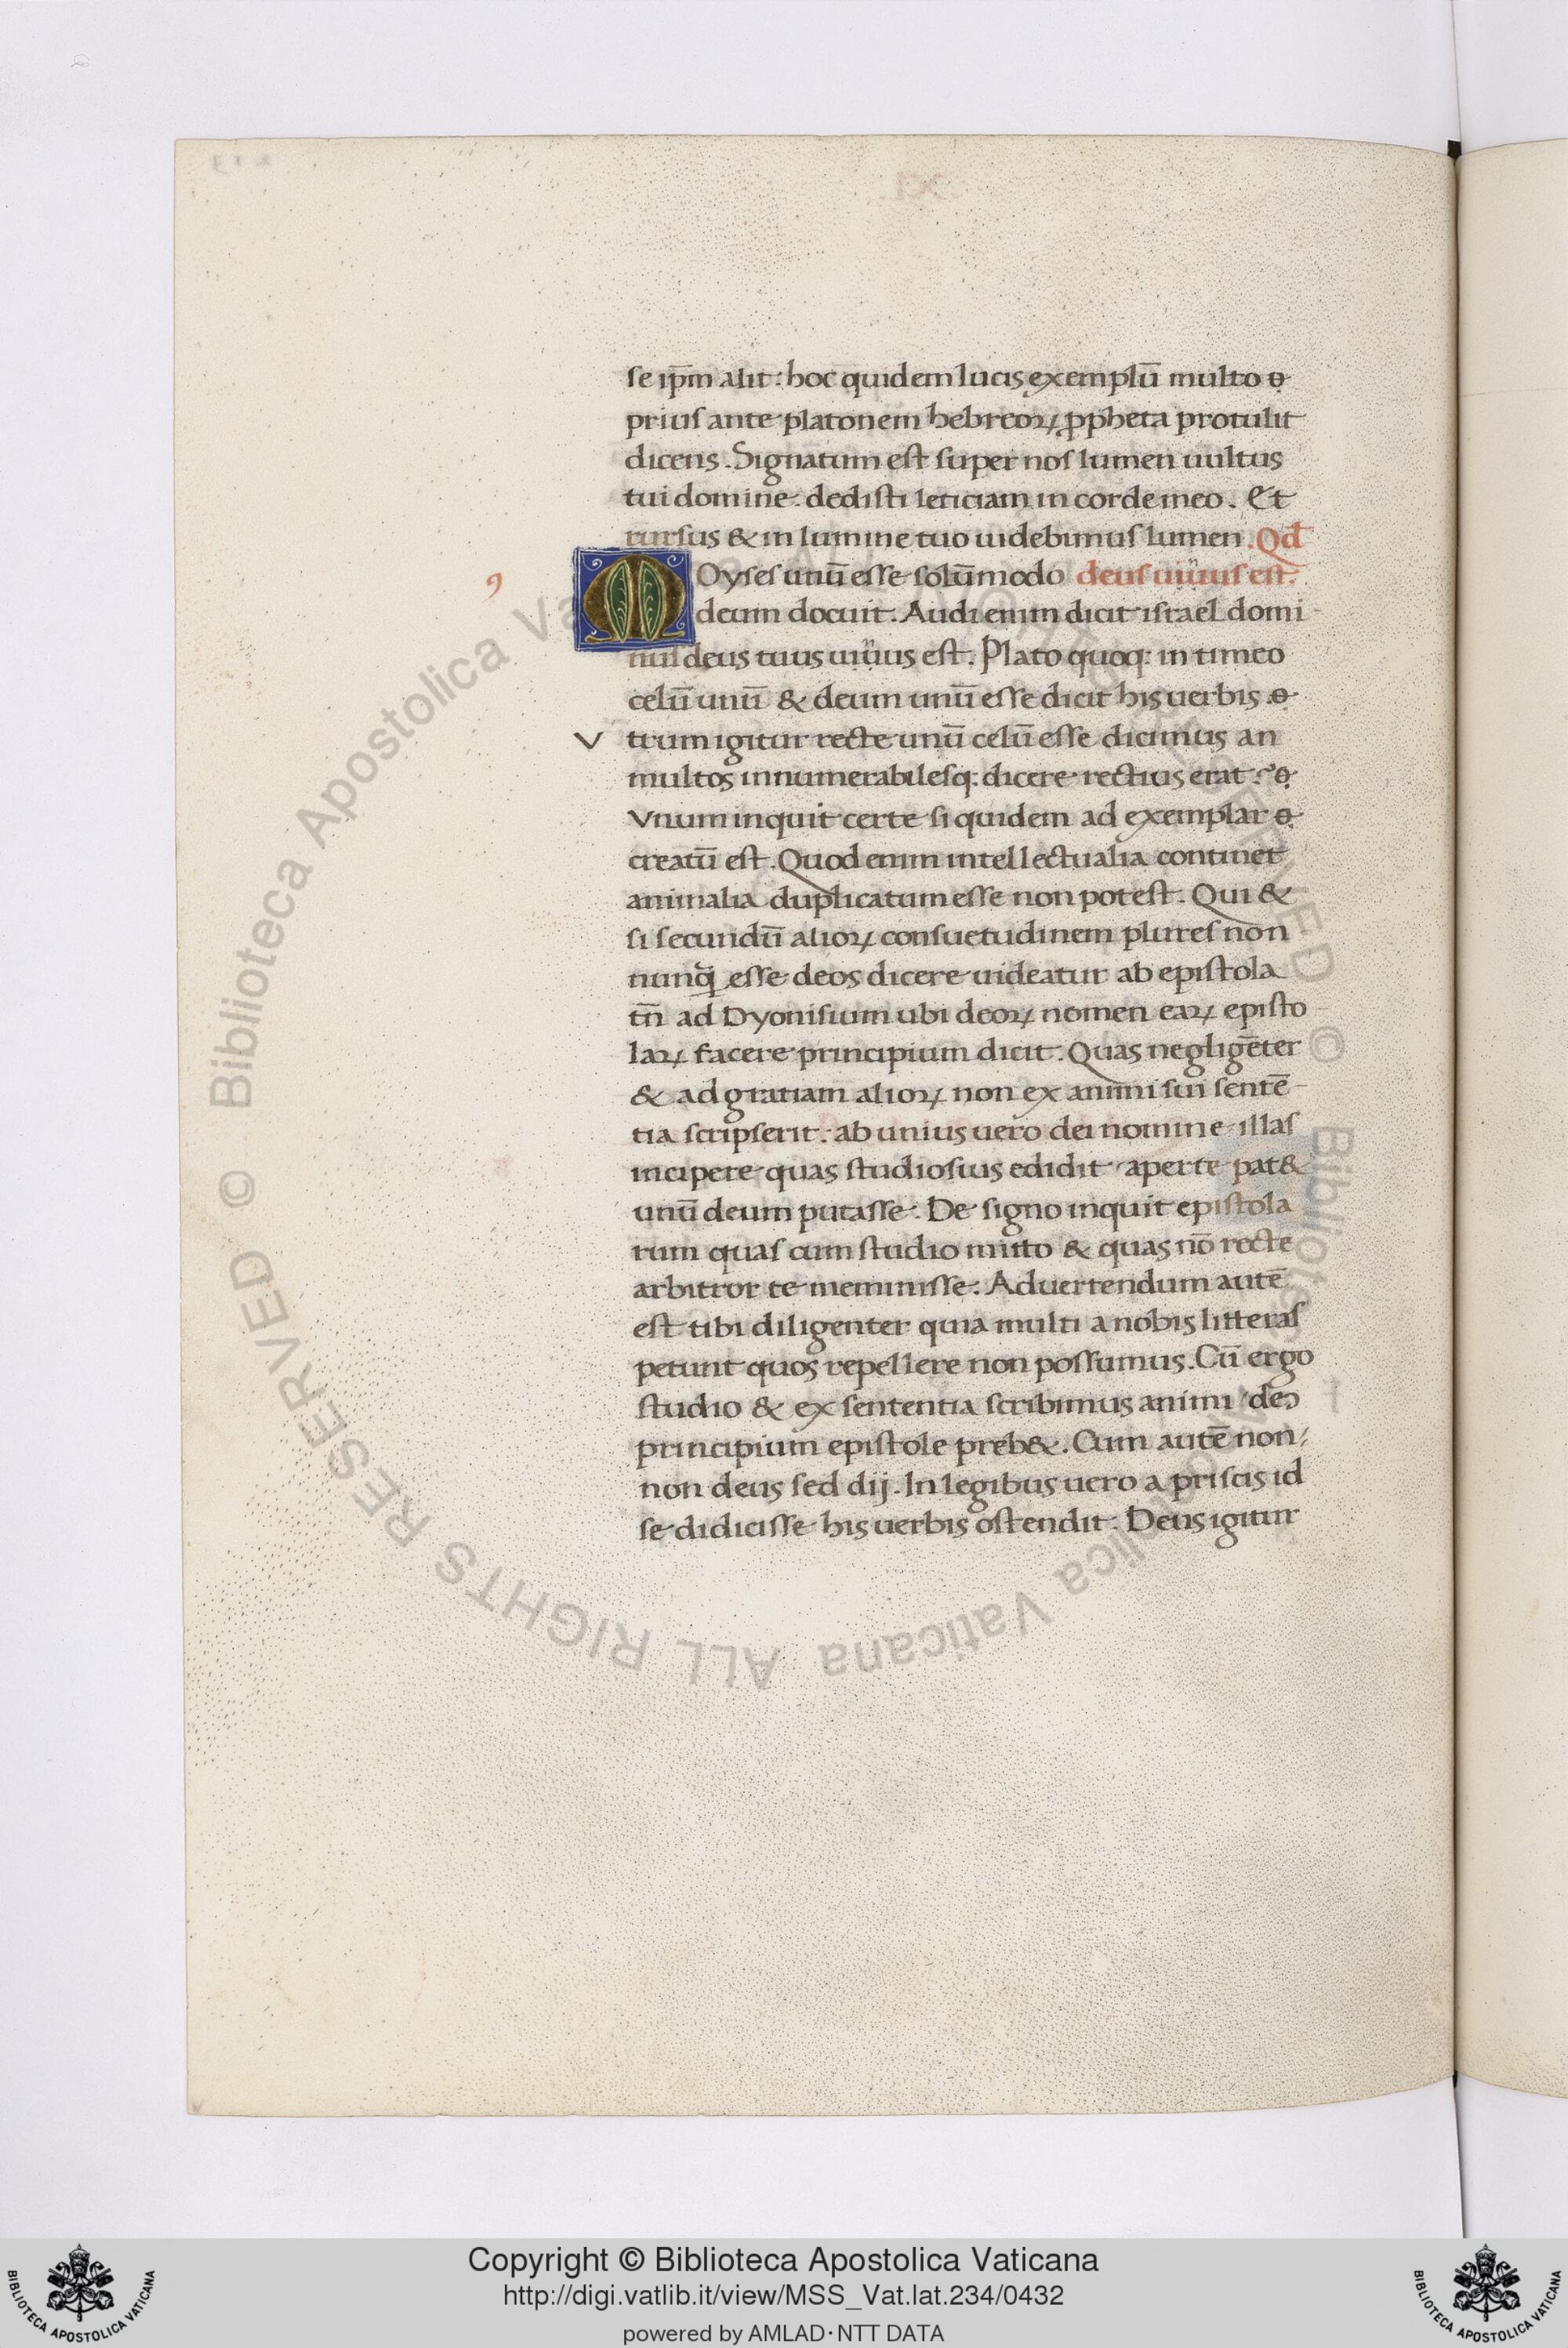 se ip̄m alit: hoc quidem lucis exemplū multo
prius ante platonem hebreoꝝ ꝓpheta protulit
dicens. Signatum est super nos lumen uultus
tui domine. dedisti leticiam in corde meo. Et
rursus & in lumine tuo uidebimus lumen. Qd̄
MOyses unū esse solūmodo deus uiuus est.
deum docuit. Audi enim dicit israel domi
nus deus tuus uiuus est. Plato quoq: in timeo
celū unū & deum unū esse dicit his uerbis.
Vtrum igitur recte unū celū esse dicimus an
multos innumerabilesq: dicere rectius erat?
Vnum inquit certe si quidem ad exemplar
creatū est. Quod enim intellectualia continet
animalia duplicatum esse non potest. Qui &
si secundū alioꝝ consuetudinem plures non
nunq̄ esse deos dicere uideatur ab epistola
tn̄ ad Dyonisium ubi deoꝝ nomen eaꝝ episto
laꝝ facere principium dicit. Quas negligēter
& ad gratiam alioꝝ non ex animi sui sentē
tia scripserit: ab unius uero dei nomine illas
incipere quas studiosius edidit aperte pat&
unū deum putasse. De signo inquit epistola
rum quas cum studio mitto & quas nō recte
arbitror te meminisse. Aduertendum autē
est tibi diligenter quia multi a nobis litteras
petunt quos repellere non possumus. Cū ergo
studio & ex sententia scribimus animi deꝰ
principium epistole preb&. Cum autē non
non deus sed dij. In legibus uero a priscis id
se didicisse his uerbis ostendit. Deus igitur
© Biblioteca Apostolica Vaticana ALL RIGHTS RESERVED
Copyright © Biblioteca Apostolica Vaticana
http://digi.vatlib.it/view/MSS_Vat.lat.234/0432
powered by AMLAD·NTT DATA
BIBLIOTECA APOSTOLICA VATICANA
BIBLIOTECA APOSTOLICA VATICANA